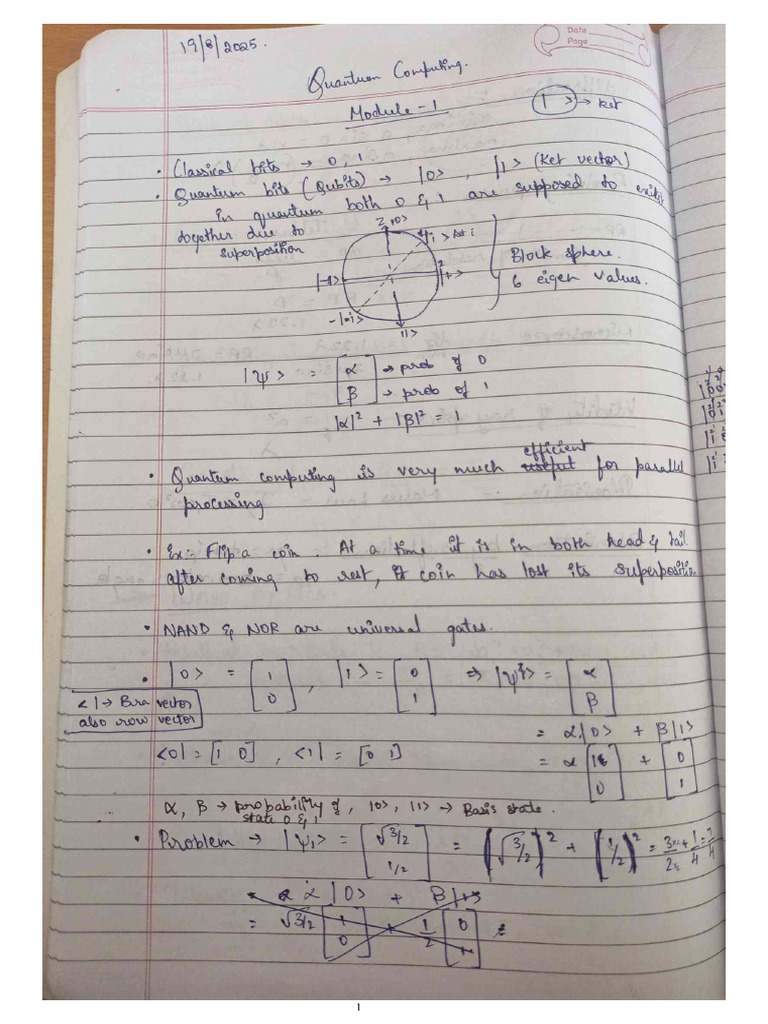 Date
Page
19/8/2025.
Quantum Computing.
Module - 1
| > → ket
• Classical bits → 0, 1
• Quantum bits (Qubits) → |0>, |1> (Ket vector)
In quantum both 0 & 1 are supposed to exists
together due to
superposition
z |0>
|i>
|->
|+>
-|i>
|1>
Block sphere.
6 eigen values.
|ψ> = [α β] → prob of 0
→ prob of 1
|α|² + |β|² = 1
efficient
• Quantum computing is very much useful for parallel
processing
• Ex:- Flip a coin At a time it is in both head & tail
after coming to rest, it coin has lost its superposition
• NAND & NOR are universal gates.
• |0> = [1 0], |1> = [0 1] ⇒ |ψ> = [α β]
<| → Bra vector
also row vector
= α|0> + β|1>
<0| = [1 0], <1| = [0 1]
= α [1 0] + [0 1]
α, β → probability of, |0>, |1> → Basis state.
state 0 & 1
• Problem → |ψ₁> = [√3/2 1/2] = (√3/2)² + (1/2)² = 3/2 + 1/4 = 7/4
α |0> + β |1>
= √3/2 [1 0] + 1/2 [0 1] =
1